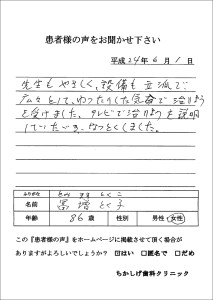 患者様の声をお聞かせ下さい
平成24年6月1日
先生もやさしく、設備も立派で
広々として、ゆったりした気分で治りょう
を受けました。テレビで治りょうを説明
していただき、なっとくしました。
ふりがな
名前 富増 とく子
年齢 86歳 性別 男性・女性
この『患者様の声』をホームページに掲載させて頂く場合が
ありますがよろしいでしょうか? ☑はい □匿名で □だめ
ちかしげ歯科クリニック